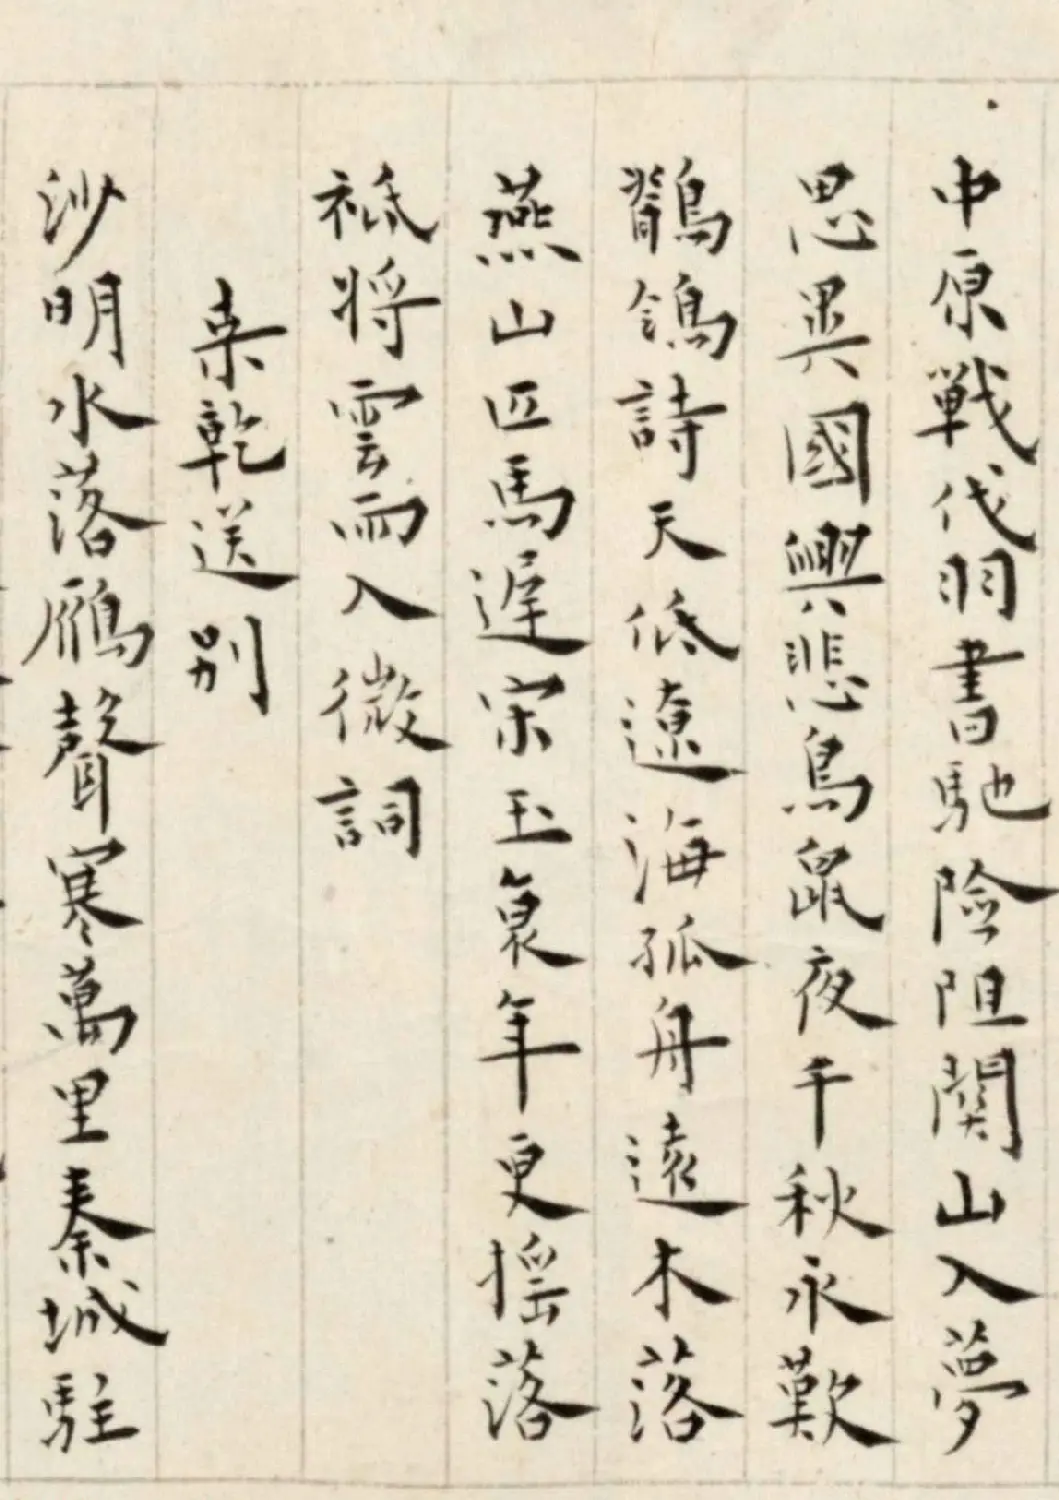 中原戰伐羽書馳險阻關山入夢
思異國興悲鳥鼠夜千秋永歎
鶺鴒詩天低遼海孤舟遠木落
燕山匹馬遲宋玉衰年更搖落
祗將雲雨入微詞
桒乾送別
沙明水落鴈聲寒萬里秦城駐